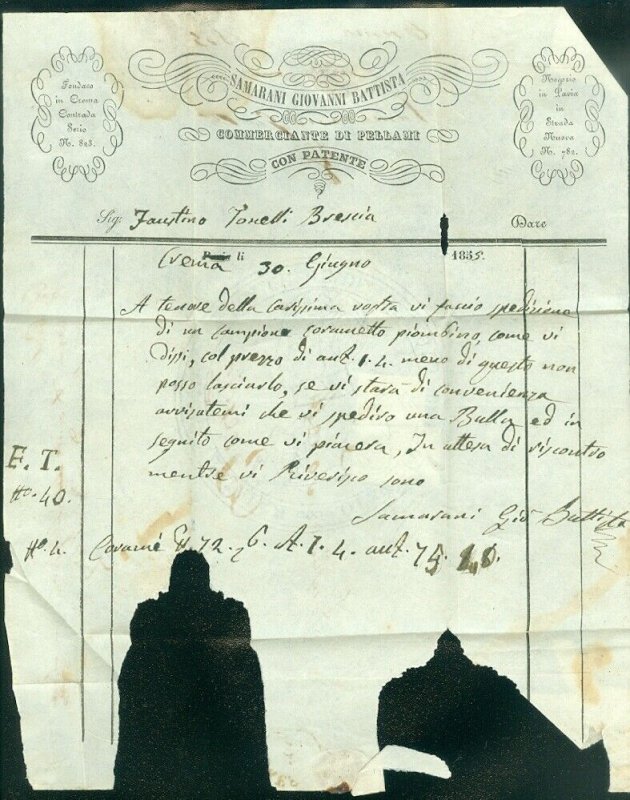 Fondaco
in Crema
Contrada
Serio
N. 823.
SAMARANI GIOVANNI BATTISTA
COMMERCIANTE DI PELLAMI
CON PATENTE
Negozio
in Pavia
in
Strada
Nuova
N. 782.
Sig. Faustino Tonelli Brescia
Dare
Crema li 30. Giugno 1855.
A tenore della carissima vostra vi faccio spedizione
di un campione corametto piombino, come vi
dissi, col prezzo di aut. 1.4. meno di questo non
posso lasciarlo, se vi starà di convenienza
avvisatemi che vi spedirò una Balla ed in
seguito come vi piacerà, In attesa di riscontro
mentre vi Riverisco sono
F. T.
No. 40.
Samarani Gio Battista
No. 4. Corame 72. A. 1.4. aut. 75.